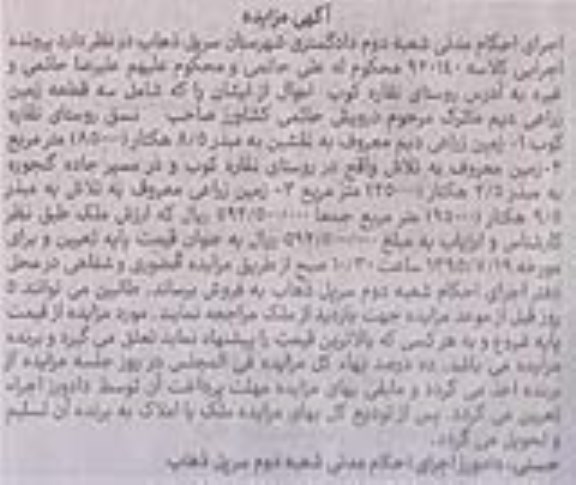 آگهی مزایده
اجرای احکام مدنی شعبه دوم دادگستری شهرستان سرپل ذهاب در نظر دارد پرونده
اجرایی کلاسه ۹۴۰۱۴۰ محکوم له علی حاتمی و محکوم علیهم علیرضا حاتمی و
غیره به آدرس روستای نقاره کوب اموال از ایشان را که شامل سه قطعه زمین
زراعی دیم ماترک مرحوم درویش حاتمی کشاورز صاحب نسق روستای نقاره
کوب ۱- زمین زراعی دیم معروف به به میزان ۸/۵ هکتار (۸۵۰۰۰) متر مربع
۲- زمین معروف به تلاش واقع در روستای نقاره کوب و در مسیر جاده
به میزان ۲/۵ هکتار (۲۵۰۰۰) متر مربع ۳- زمین زراعی معروف به تلاش به میزان
۹/۵ هکتار (۹۵۰۰۰) متر مربع جمعا ریال که ارزش ملک طبق نظر
کارشناس و ارزیاب به مبلغ ریال به عنوان قیمت پایه تعیین و برای
مورخه ۱۳۹۵/۷/۱۹ ساعت ۱۰/۳۰ صبح از طریق مزایده حضوری و شفاهی در محل
دفتر اجرای احکام شعبه دوم سرپل ذهاب به فروش برساند. طالبین می توانند ۵
روز قبل از موعد مزایده جهت بازدید از ملک مراجعه نمایند. مورد مزایده از قیمت
پایه شروع و به هر کسی که بالاترین قیمت را پیشنهاد نماید تعلق می گیرد و برنده
مزایده می باشد. ده درصد بهاء کل مزایده فی المجلس در روز جلسه مزایده از
برنده اخذ می گردد و مابقی بهای مزایده مهلت پرداخت آن توسط دادورز اجراء
تعیین می گردد. پس از تودیع کل بهای مزایده ملک یا املاک به برنده آن تسلیم
و تحویل می گردد.
دادورز اجرای احکام مدنی شعبه دوم سرپل ذهاب